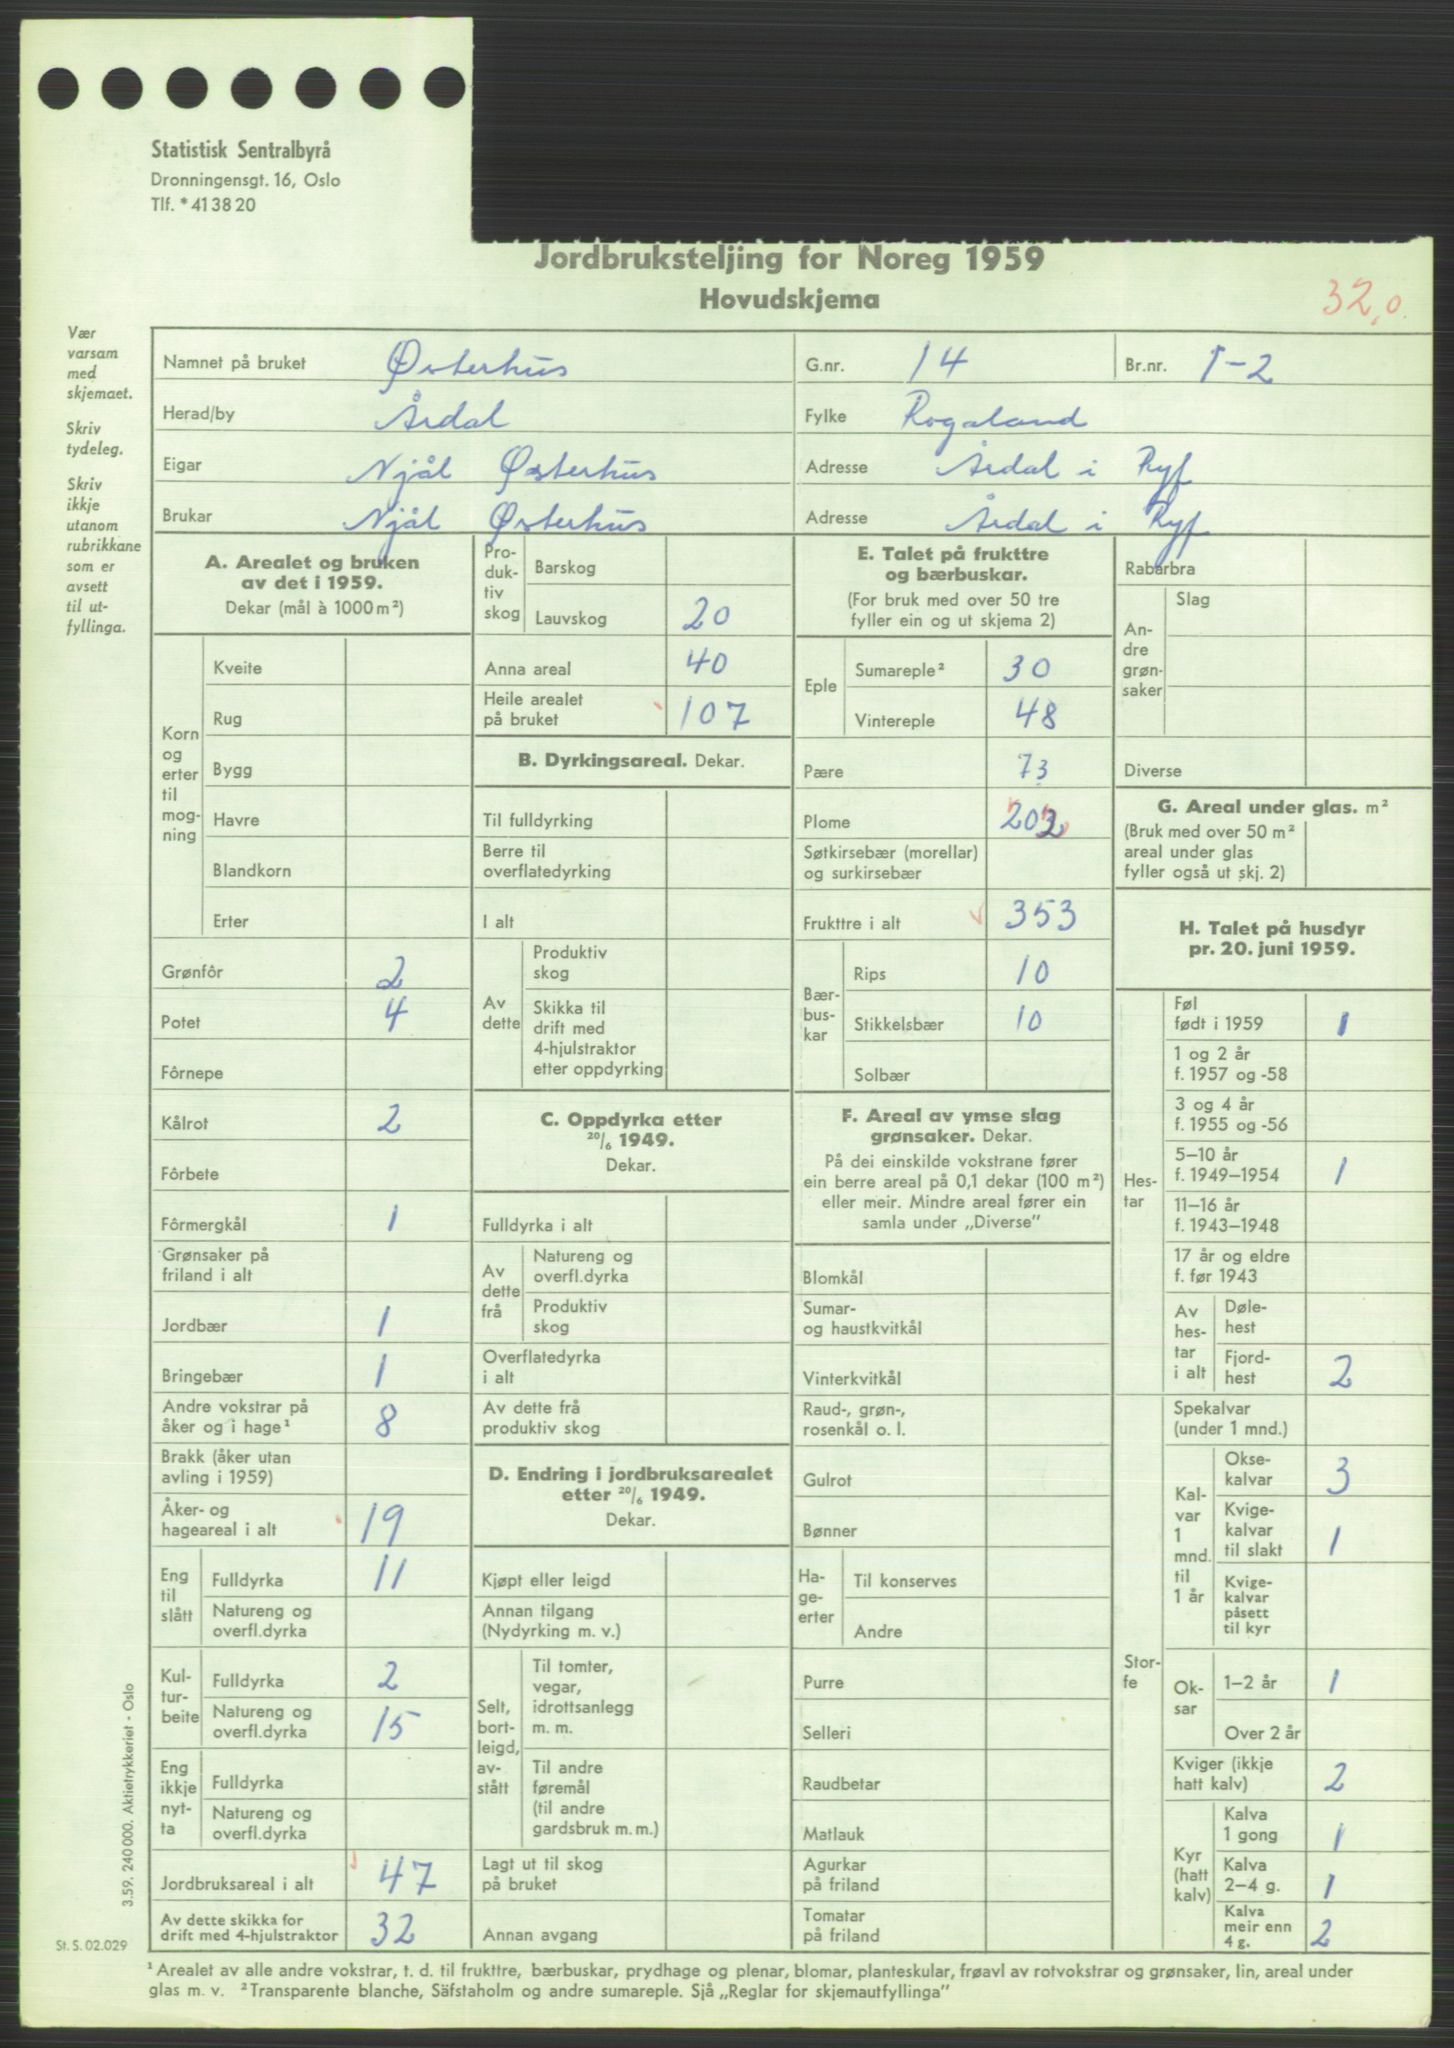 Statistisk Sentralbyrå
Dronningensgt. 16, Oslo
Tlf. * 41 38 20
Jordbruksteljing for Noreg 1959
Hovudskjema
32,0.
Vær
varsam
med
skjemaet.
Skriv
tydeleg.
Skriv
ikkje
utanom
rubrikkane
som er
avsett
til ut-
fyllinga.
Namnet på bruket Østerhus G.nr. 14 Br.nr. 1-2
Herad/by Årdal Fylke Rogaland
Eigar Njål Østerhus Adresse Årdal i Ryf
Brukar Njål Østerhus Adresse Årdal i Ryf
A. Arealet og bruken
av det i 1959.
Dekar (mål à 1000 m²)
Korn
og
erter
til
mog-
ning
Kveite
Rug
Bygg
Havre
Blandkorn
Erter
Grønfôr 2
Potet 4
Fôrnepe
Kålrot 2
Fôrbete
Fôrmergkål 1
Grønsaker på
friland i alt
Jordbær 1
Bringebær 1
Andre vokstrar på
åker og i hage¹ 8
Brakk (åker utan
avling i 1959)
Åker- og
hageareal i alt 19
Eng
til
slått
Fulldyrka 11
Natureng og
overfl.dyrka
Kul-
tur-
beite
Fulldyrka 2
Natureng og
overfl.dyrka 15
Eng
ikkje
nyt-
ta
Fulldyrka
Natureng og
overfl.dyrka
Jordbruksareal i alt 47
Av dette skikka for
drift med 4-hjulstraktor 32
Pro-
duk-
tiv
skog
Barskog
Lauvskog 20
Anna areal 40
Heile arealet
på bruket 107
B. Dyrkingsareal. Dekar.
Til fulldyrking
Berre til
overflatedyrking
I alt
Av
dette
Produktiv
skog
Skikka til
drift med
4-hjulstraktor
etter oppdyrking
C. Oppdyrka etter
20/6 1949.
Dekar.
Fulldyrka i alt
Av
dette
frå
Natureng og
overfl.dyrka
Produktiv
skog
Overflatedyrka
i alt
Av dette frå
produktiv skog
D. Endring i jordbruksarealet
etter 20/6 1949.
Dekar.
Kjøpt eller leigd
Annan tilgang
(Nydyrking m. v.)
Selt,
bort-
leigd,
av-
stått
Til tomter,
vegar,
idrottsanlegg
m. m.
Til andre
føremål
(til andre
gardsbruk m. m.)
Lagt ut til skog
på bruket
Annan avgang
E. Talet på frukttre
og bærbuskar.
(For bruk med over 50 tre
fyller ein og ut skjema 2)
Eple
Sumareple² 30
Vintereple 48
Pære 73
Plome 202
Søtkirsebær (morellar)
og surkirsebær
Frukttre i alt 353
Bær-
bus-
kar
Rips 10
Stikkelsbær 10
Solbær
F. Areal av ymse slag
grønsaker. Dekar.
På dei einskilde vokstrane fører
ein berre areal på 0,1 dekar (100 m²)
eller meir. Mindre areal fører ein
samla under „Diverse”
Blomkål
Sumar-
og haustkvitkål
Vinterkvitkål
Raud-, grøn-,
rosenkål o. l.
Gulrot
Bønner
Ha-
ge-
erter
Til konserves
Andre
Purre
Selleri
Raudbetar
Matlauk
Agurkar
på friland
Tomatar
på friland
Rabarbra
An-
dre
grøn-
saker
Slag
Diverse
G. Areal under glas. m²
(Bruk med over 50 m²
areal under glas
fyller også ut skj. 2)
H. Talet på husdyr
pr. 20. juni 1959.
Hes-
tar
Føl
født i 1959 1
1 og 2 år
f. 1957 og -58
3 og 4 år
f. 1955 og -56
5–10 år
f. 1949–1954 1
11–16 år
f. 1943–1948
17 år og eldre
f. før 1943
Av
hes-
tar
i alt
Døle-
hest
Fjord-
hest 2
Stor-
fe
Spekalvar
(under 1 mnd.)
Kal-
var
1
mnd.
til
1 år
Okse-
kalvar 3
Kvige-
kalvar
til slakt 1
Kvige-
kalvar
påsett
til kyr
Ok-
sar
1–2 år 1
Over 2 år
Kviger (ikkje
hatt kalv) 2
Kyr
(hatt
kalv)
Kalva
1 gong 1
Kalva
2–4 g. 1
Kalva
meir enn
4 g. 2
3.59. 240 000. Aktietrykkeriet - Oslo
St. S. 02.029
¹ Arealet av alle andre vokstrar, t. d. til frukttre, bærbuskar, prydhage og plenar, blomar, planteskular, frøavl av rotvokstrar og grønsaker, lin, areal under
glas m. v. ² Transparente blanche, Säfstaholm og andre sumareple. Sjå „Reglar for skjemautfyllinga”